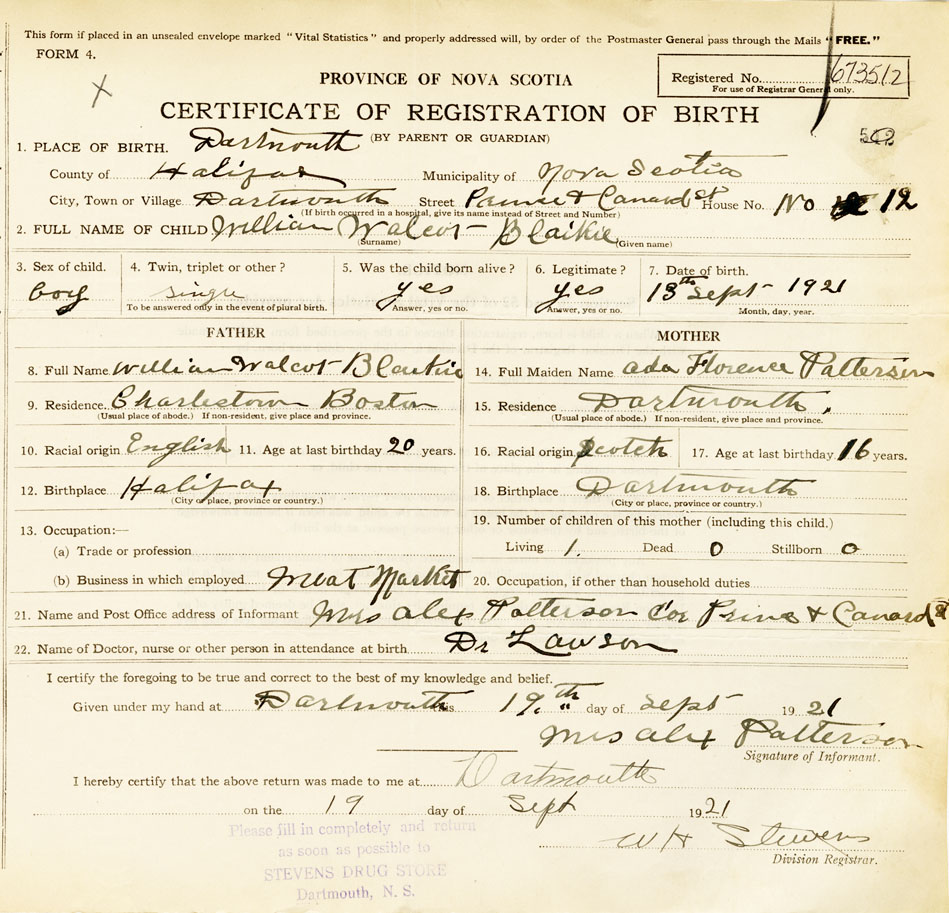 This form if placed in an unsealed envelope marked "Vital Statistics" and properly addressed will, by order of the Postmaster General pass through the Mails "FREE."
FORM 4.
PROVINCE OF NOVA SCOTIA
Registered No. 673512
For use of Registrar General only.
CERTIFICATE OF REGISTRATION OF BIRTH
(BY PARENT OR GUARDIAN)
1. PLACE OF BIRTH. Dartmouth
County of Halifax Municipality of Nova Scotia
City, Town or Village Dartmouth Street Prince & Canard St House No. No 12
(If birth occurred in a hospital, give its name instead of Street and Number)
2. FULL NAME OF CHILD William Walcot Blaikie
(Surname) (Given name)
3. Sex of child. 4. Twin, triplet or other? 5. Was the child born alive? 6. Legitimate? 7. Date of birth.
boy single yes yes 13th Sept 1921
To be answered only in the event of plural birth. Answer, yes or no. Answer, yes or no. Month, day, year.
FATHER MOTHER
8. Full Name William Walcot Blaikie 14. Full Maiden Name Ada Florence Patterson
9. Residence Charlestown Boston 15. Residence Dartmouth.
(Usual place of abode.) If non-resident, give place and province. (Usual place of abode.) If non-resident, give place and province.
10. Racial origin English 11. Age at last birthday 20 years. 16. Racial origin Scotch 17. Age at last birthday 16 years.
12. Birthplace Halifax 18. Birthplace Dartmouth
(City or place, province or country.) (City or place, province or country.)
13. Occupation:— 19. Number of children of this mother (including this child.)
(a) Trade or profession Living 1. Dead 0 Stillborn 0
(b) Business in which employed Meat Market 20. Occupation, if other than household duties
21. Name and Post Office address of Informant Mrs Alex Patterson Cor Prince & Canard St
22. Name of Doctor, nurse or other person in attendance at birth Dr Lawson
I certify the foregoing to be true and correct to the best of my knowledge and belief.
Given under my hand at Dartmouth this 19th day of Sept 1921
Mrs Alex Patterson
Signature of Informant.
I hereby certify that the above return was made to me at Dartmouth
on the 19 day of Sept 1921
W H Stevens
Division Registrar.
Please fill in completely and return
as soon as possible to
STEVENS DRUG STORE
Dartmouth, N. S.